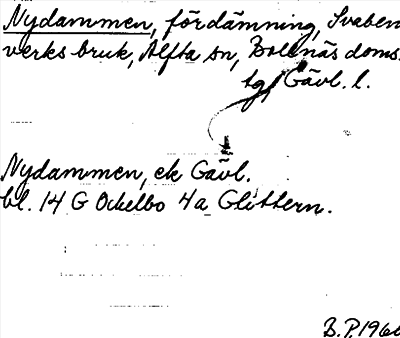 Nydammen, fördämning, Svaben
verks bruk, Alfta sn, Bollnäs doms.
tg, Gävl. l.
Nydammen, ek Gävl.
bl. 14 G Ockelbo 4a Glittern.
B.P. 1960